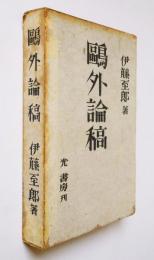 鷗外論稿
伊藤至郎著
鷗外論稿
伊藤至郎 著
光書房刊